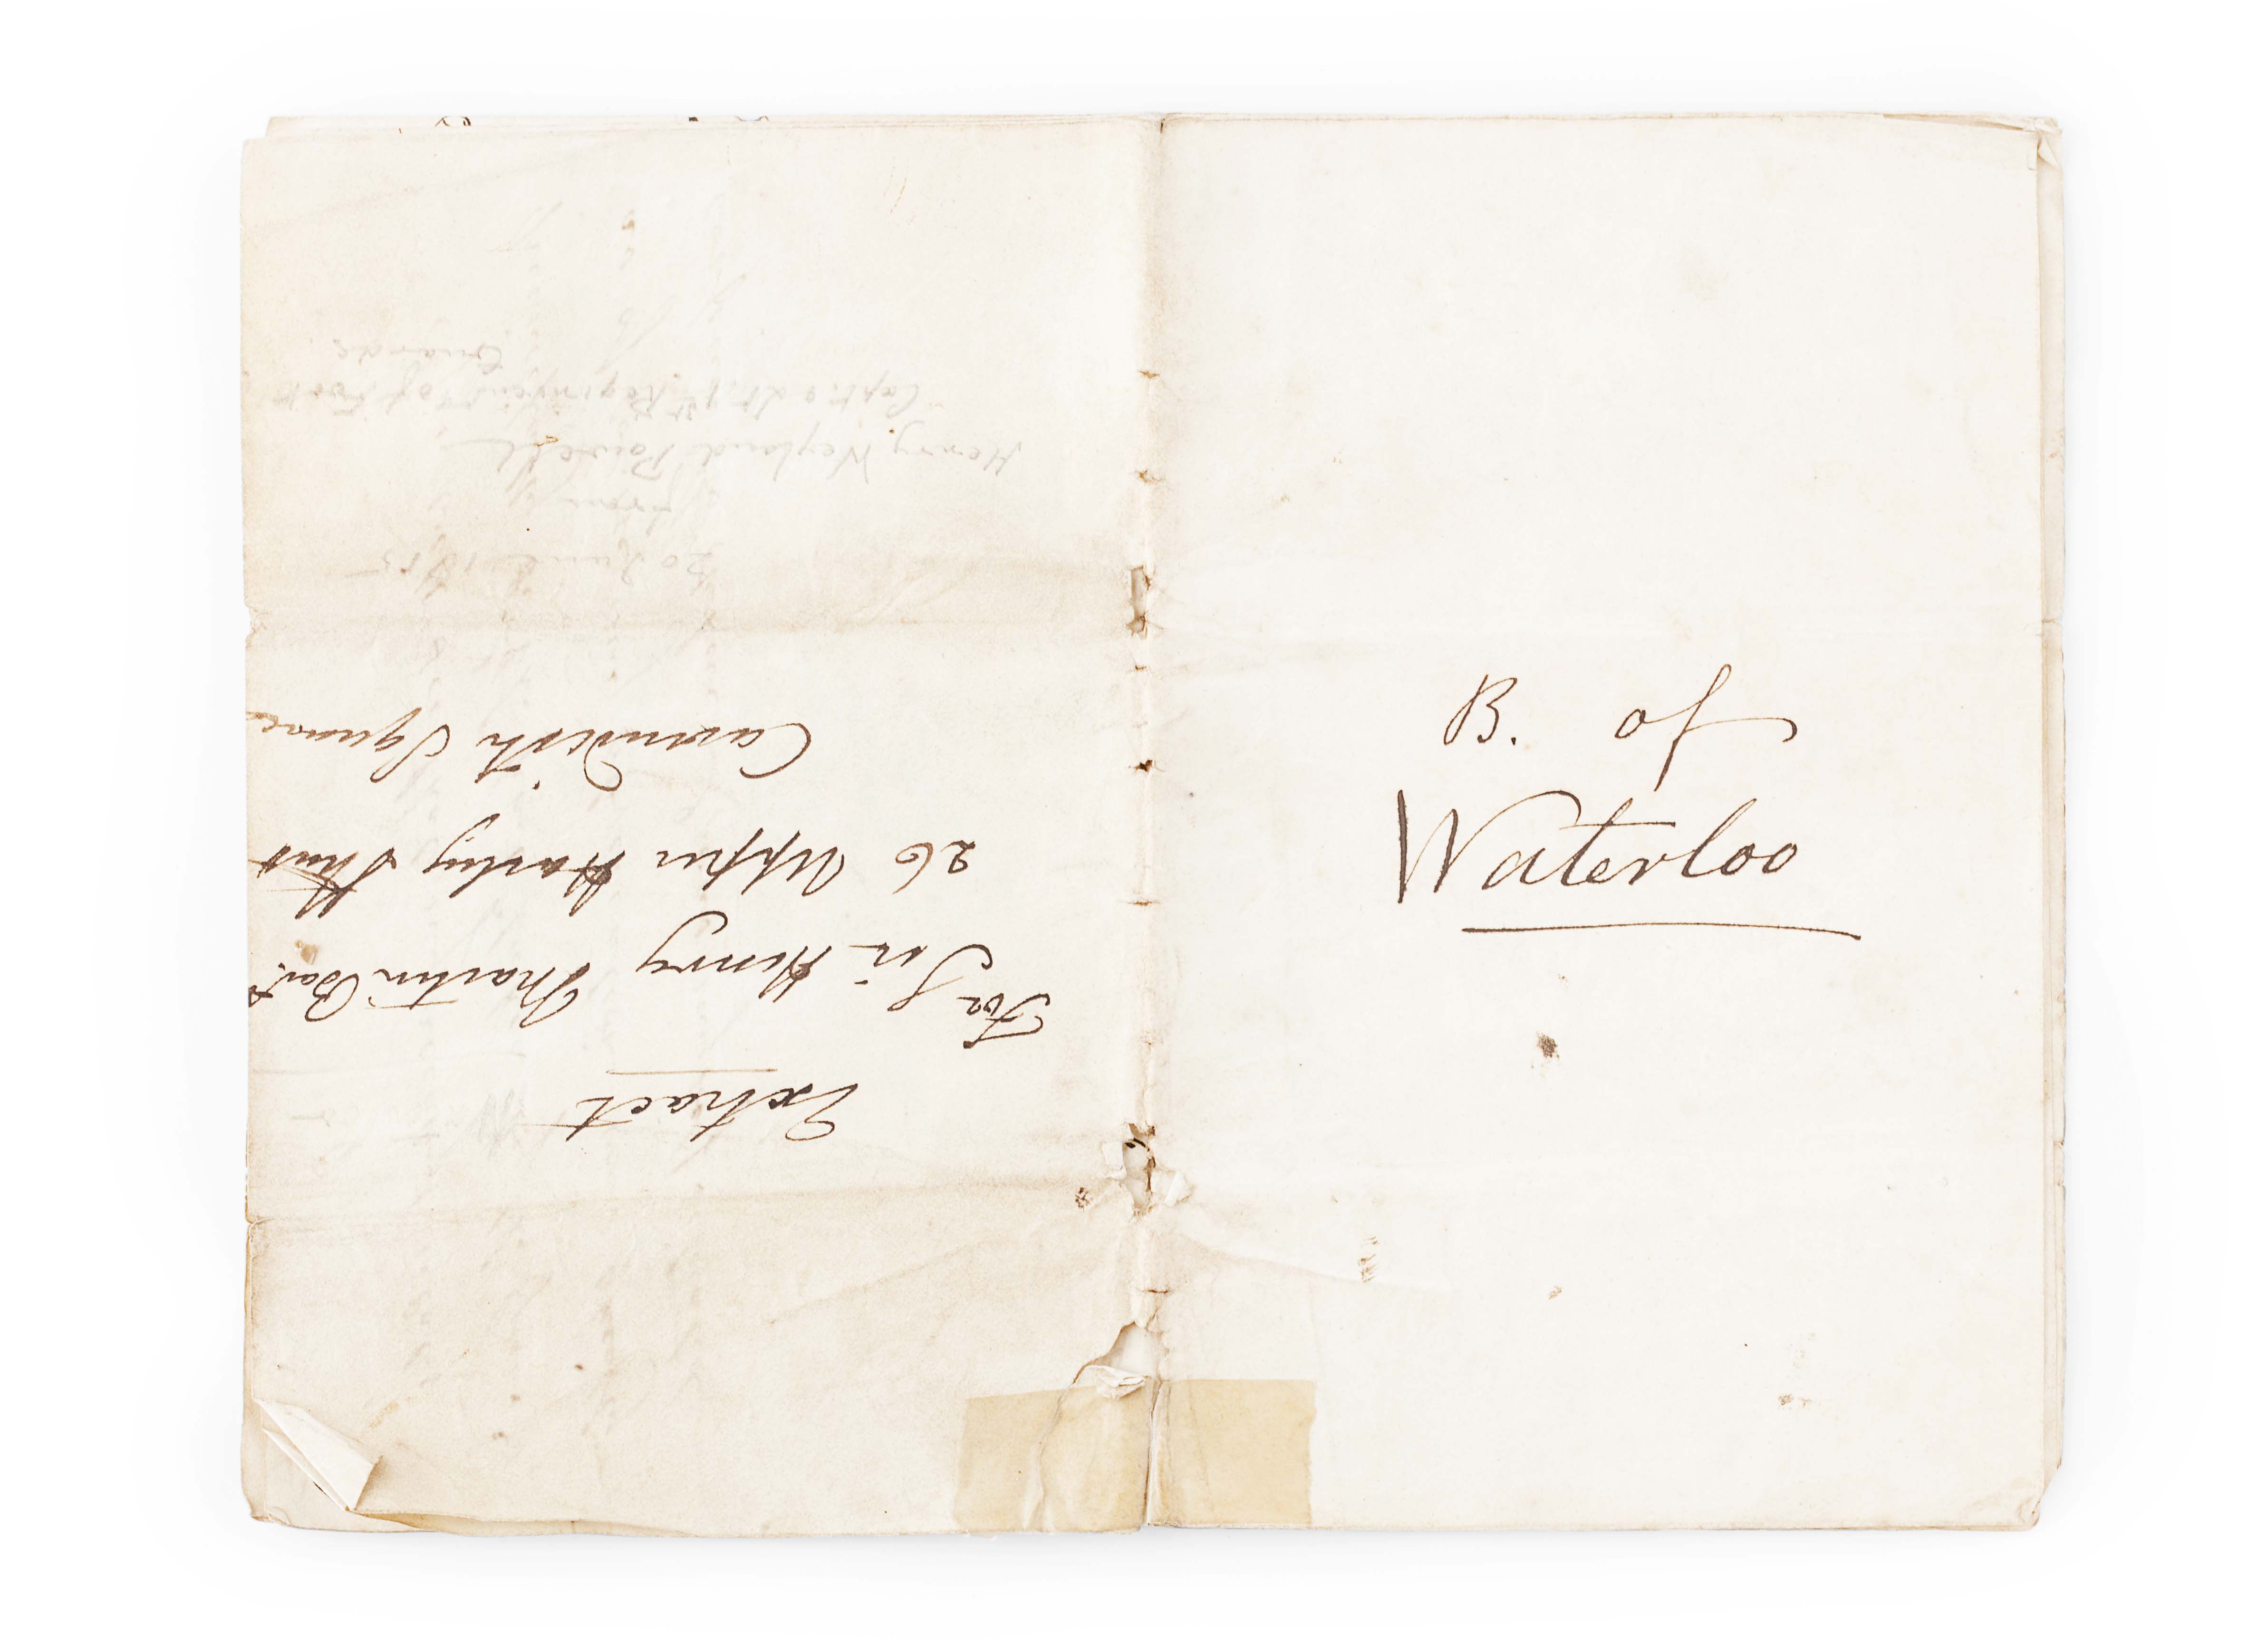 B. of
Waterloo
Extract
For Sir Henry Martin Bart
26 Upper Harley Street
Cavendish Square
20 June 1815
from
Henry Weyland Powell
Capt. & Lt. 1st Regiment of Foot
Guards.